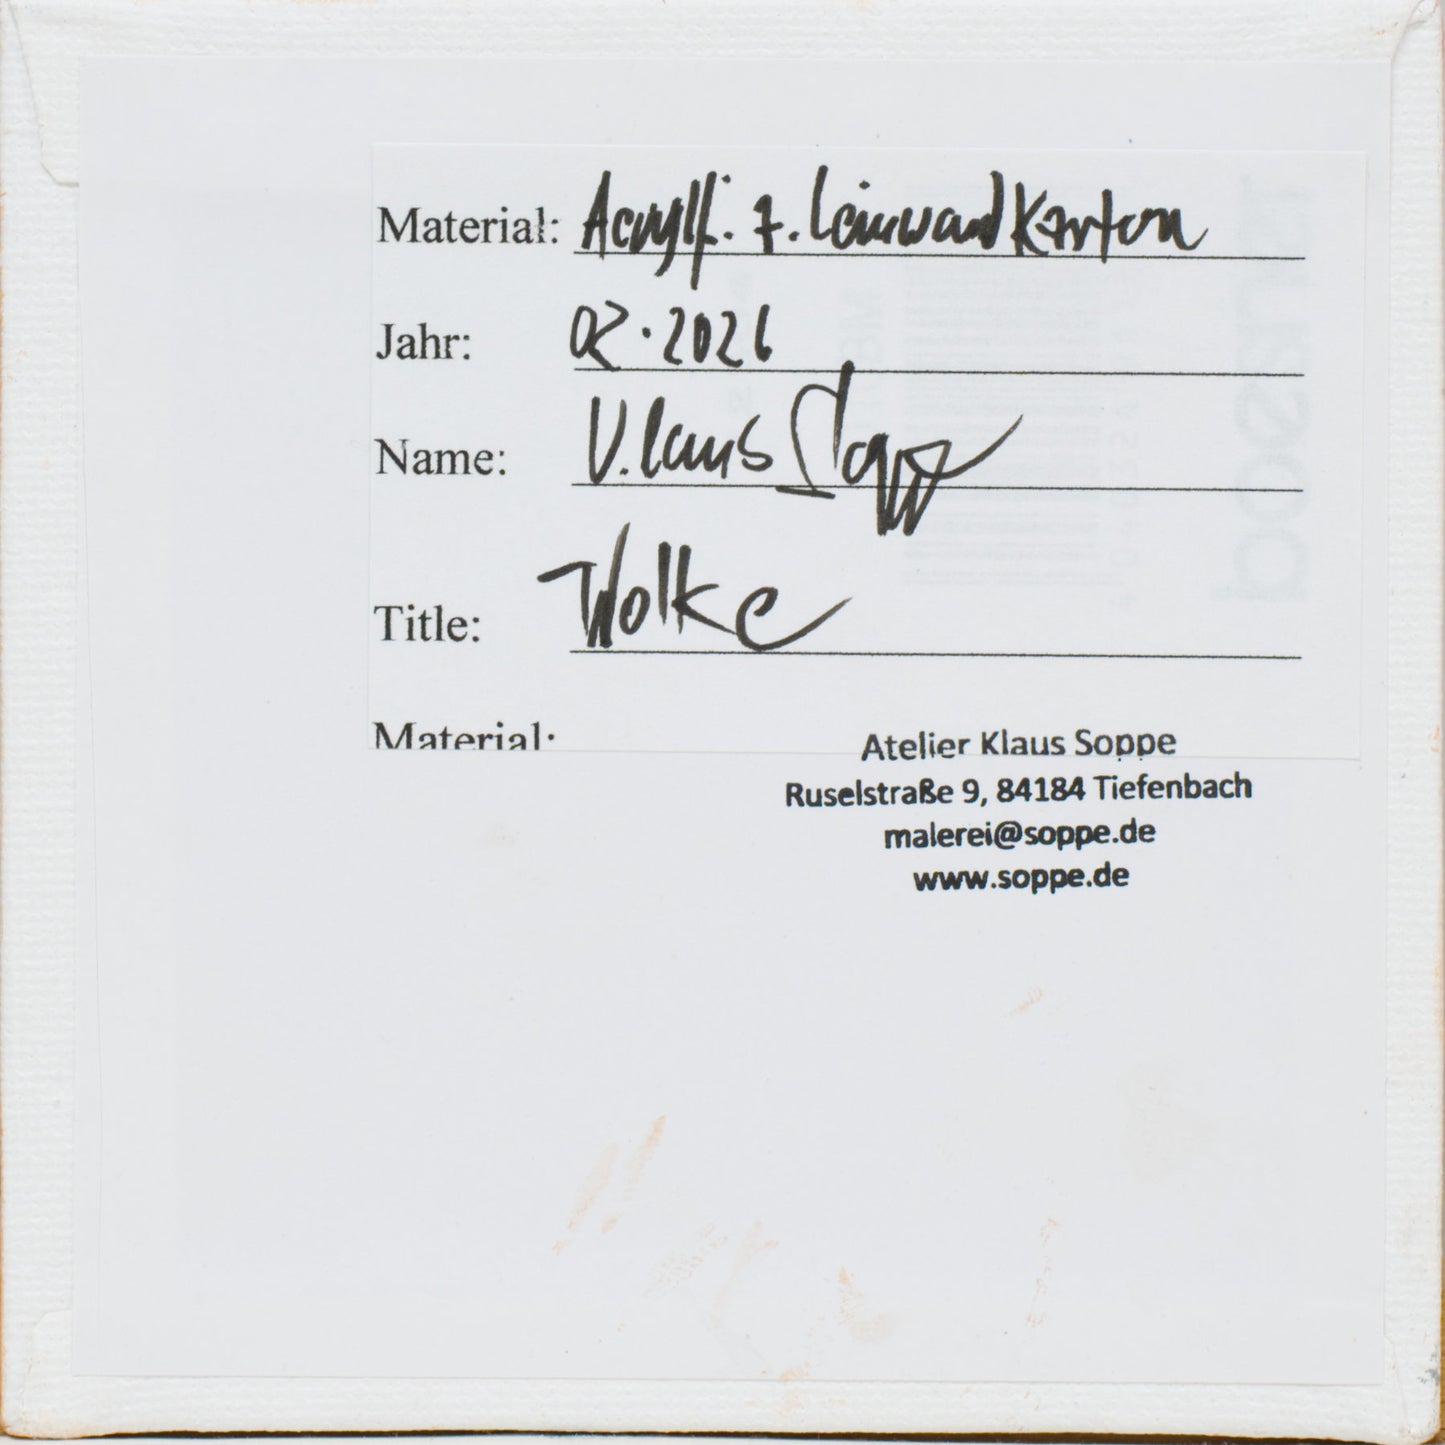 Material: Acrylf. a. Leinwand Karton
Jahr: 02.2026
Name: V. Klaus Soppe
Title: Wolke
Material:
Atelier Klaus Soppe
Ruselstraße 9, 84184 Tiefenbach
malerei@soppe.de
www.soppe.de